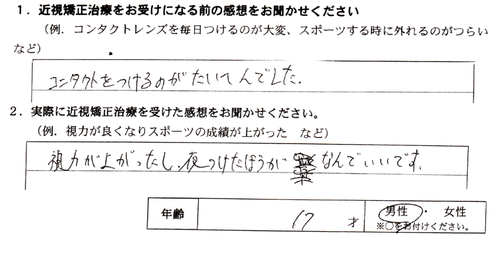 1．近視矯正治療をお受けになる前の感想をお聞かせください
（例．コンタクトレンズを毎日つけるのが大変、スポーツする時に外れるのがつらい
など）
コンタクトをつけるのがたいへんでした．
2．実際に近視矯正治療を受けた感想をお聞かせください。
（例．視力が良くなりスポーツの成績が上がった　など）
視力が上がったし、夜つけたほうが楽なんでいいです．
年齢　17　才　男性・女性
※○をお付けください。